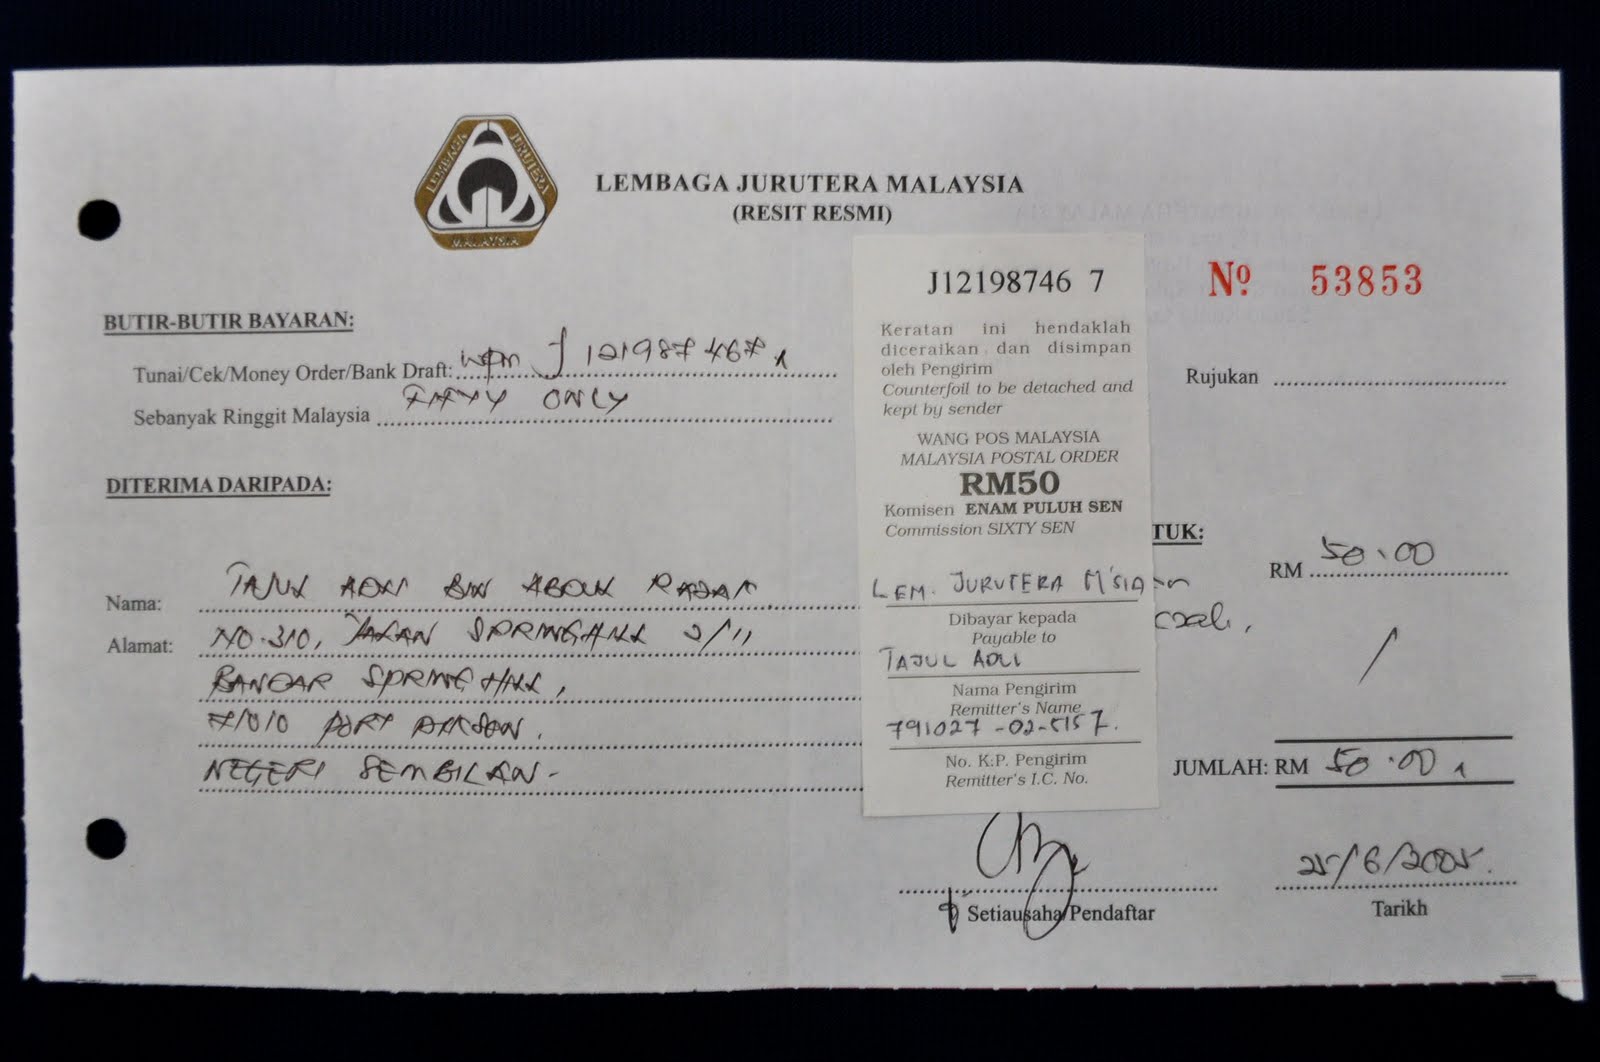 LEMBAGA JURUTERA MALAYSIA
LEMBAGA JURUTERA MALAYSIA
(RESIT RESMI)
Nº 53853
BUTIR-BUTIR BAYARAN:
Tunai/Cek/Money Order/Bank Draft: WPM J 121987467
Sebanyak Ringgit Malaysia FIFTY ONLY
Rujukan
DITERIMA DARIPADA:
Nama: TAJUL ADLI BIN ABDUL RAZAK
Alamat: NO. 310, JALAN SPRINGHILL 2/11
BANDAR SPRINGHILL,
71010 PORT DICKSON.
NEGERI SEMBILAN-
J12198746 7
Keratan ini hendaklah
diceraikan dan disimpan
oleh Pengirim
Counterfoil to be detached and
kept by sender
WANG POS MALAYSIA
MALAYSIA POSTAL ORDER
RM50
Komisen ENAM PULUH SEN
Commission SIXTY SEN
LEM. JURUTERA M'SIA
Dibayar kepada
Payable to
TAJUL ADLI
Nama Pengirim
Remitter's Name
791027-02-5157.
No. K.P. Pengirim
Remitter's I.C. No.
TUK:
RM 50.00
JUMLAH: RM 50.00
Setiausaha/Pendaftar
25/6/2005.
Tarikh